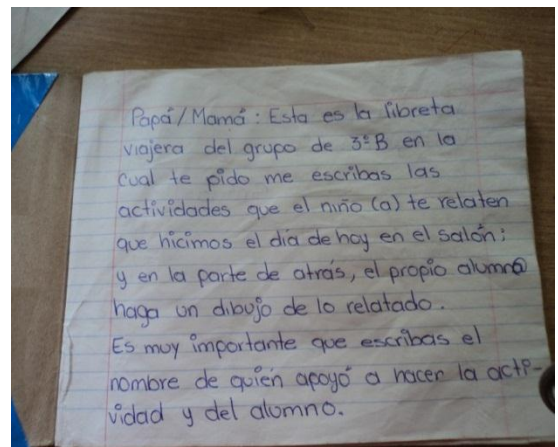 Papá/Mamá: Esta es la libreta
viajera del grupo de 3º B en la
cual te pido me escribas las
actividades que el niño (a) te relaten
que hicimos el día de hoy en el salón;
y en la parte de atrás, el propio alumno
haga un dibujo de lo relatado.
Es muy importante que escribas el
nombre de quién apoyó a hacer la acti-
vidad y del alumno.